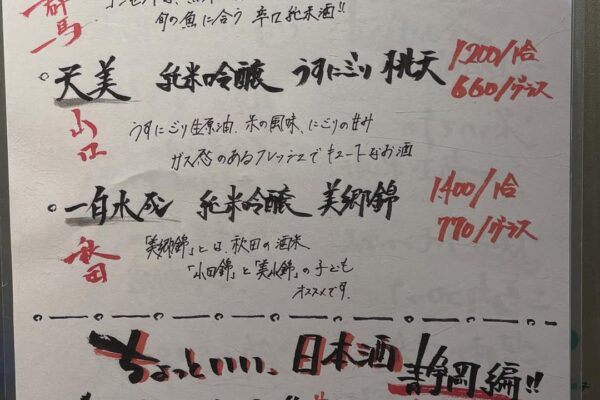 群馬
旬の魚に合う 辛口純米酒!!
天美 純米吟醸 うすにごり 桃天 1200/1合
660/グラス
山口
うすにごり生原酒、米の風味、にごりの甘み
ガス感のあるフレッシュでキュートなお酒
一白水成 純米吟醸 美郷錦 1400/1合
770/グラス
秋田
「美郷錦」とは、秋田の酒米
「山田錦」と「美山錦」の子ども
オススメです。
ちょっといい、日本酒 静岡編!!